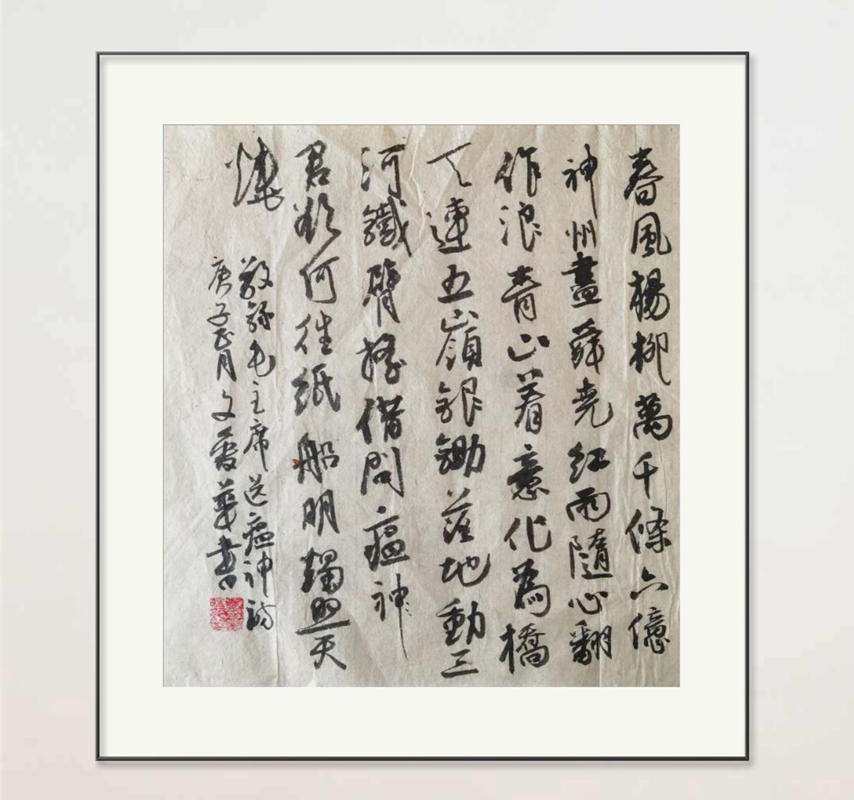 春風楊柳萬千條六億
神州盡舜堯紅雨隨心翻
作浪青山着意化為橋
天連五嶺銀鋤落地動三
河鐵臂搖借問瘟神
君欲何往紙船明燭照天
燒
敬錄毛主席送瘟神詩
庚子正月文華書